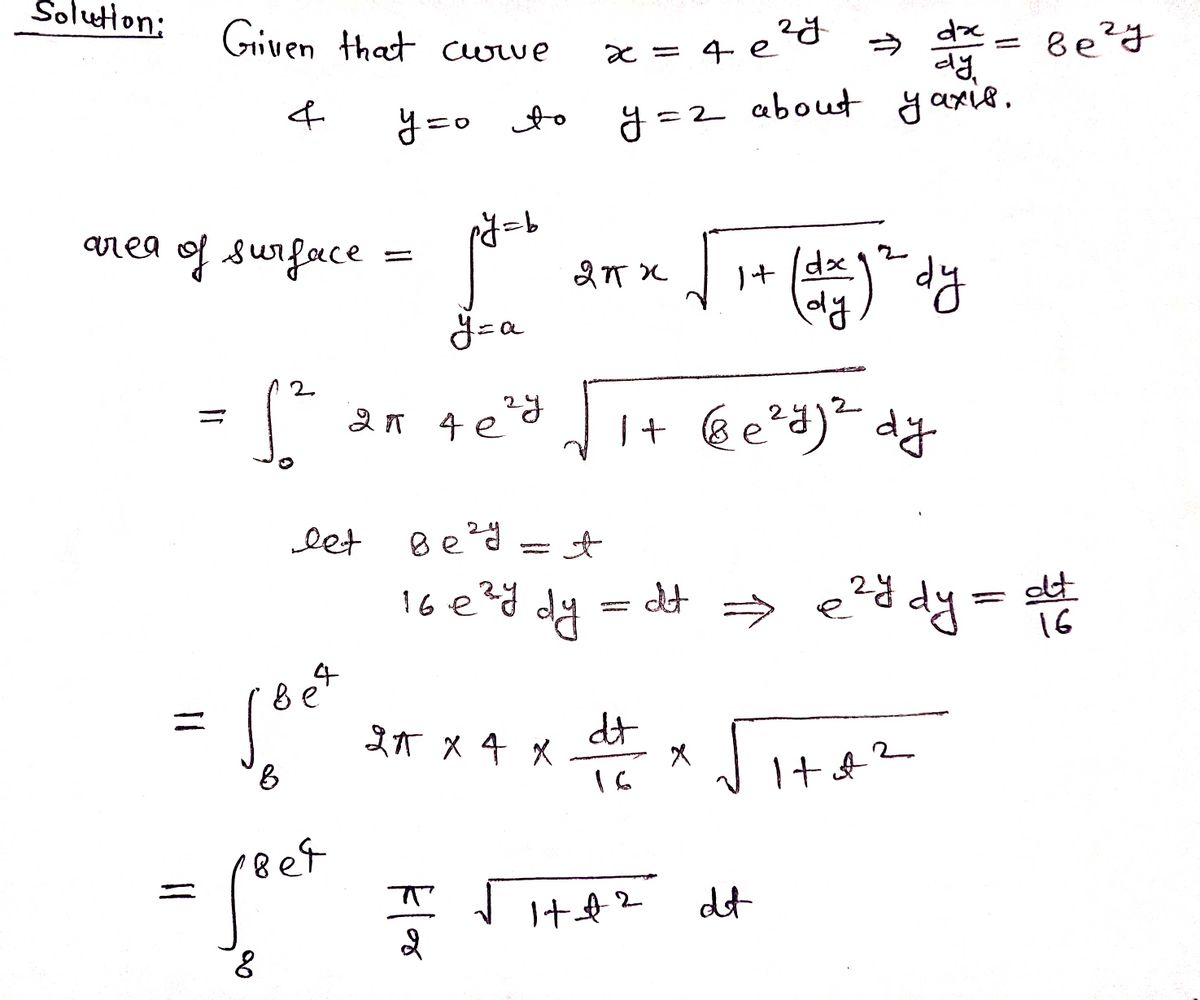 Solution:
Given that curve x = 4 e^{2y} ⇒ dx/dy = 8e^{2y}
& y=0 to y=2 about y axis.
area of surface = ∫_{y=a}^{y=b} 2π x √(1+(dx/dy)^2) dy
= ∫_0^2 2π 4e^{2y} √(1+(8e^{2y})^2) dy
let 8e^{2y} = t
16 e^{2y} dy = dt ⇒ e^{2y} dy = dt/16
= ∫_8^{8e^4} 2π × 4 × dt/16 × √(1+t^2)
= ∫_8^{8e^4} π/2 √(1+t^2) dt